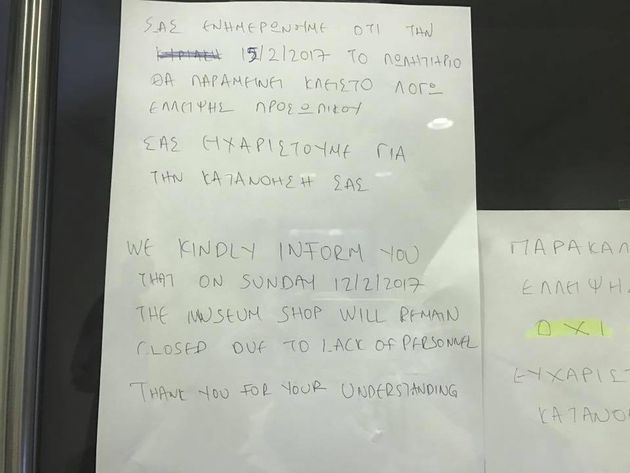 ΣΑΣ ΕΝΗΜΕΡΩΝΟΥΜΕ ΟΤΙ ΤΗΝ
ΚΥΡΙΑΚΗ 15/2/2017 ΤΟ ΠΩΛΗΤΗΡΙΟ
ΘΑ ΠΑΡΑΜΕΙΝΕΙ ΚΛΕΙΣΤΟ ΛΟΓΩ
ΕΛΛΕΙΨΗΣ ΠΡΟΣΩΠΙΚΟΥ
ΣΑΣ ΕΥΧΑΡΙΣΤΟΥΜΕ ΓΙΑ
ΤΗΝ ΚΑΤΑΝΟΗΣΗ ΣΑΣ
WE KINDLY INFORM YOU
THAT ON SUNDAY 12/2/2017
THE MUSEUM SHOP WILL REMAIN
CLOSED DUE TO LACK OF PERSONNEL
THANK YOU FOR YOUR UNDERSTANDING
ΠΑΡΑΚΑΛ
ΕΛΛΕΙΨΗ
ΟΧΙ
ΕΥΧΑΡΙΣΤ
ΚΑΤΑΝΟ